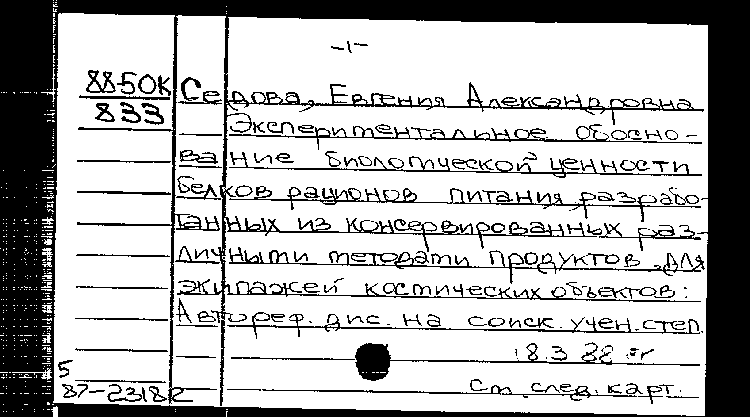 -1-
8850К Седова, Евгения Александровна
833 Экспериментальное обосно-
вание биологической ценности
белков рационов питания, разрабо-
танных из консервированных раз-
личными методами продуктов для
экипажей космических объектов:
Автореф. дис. на соиск. учен. степ.
18.3.88
5
87-23182 См. след. карт.